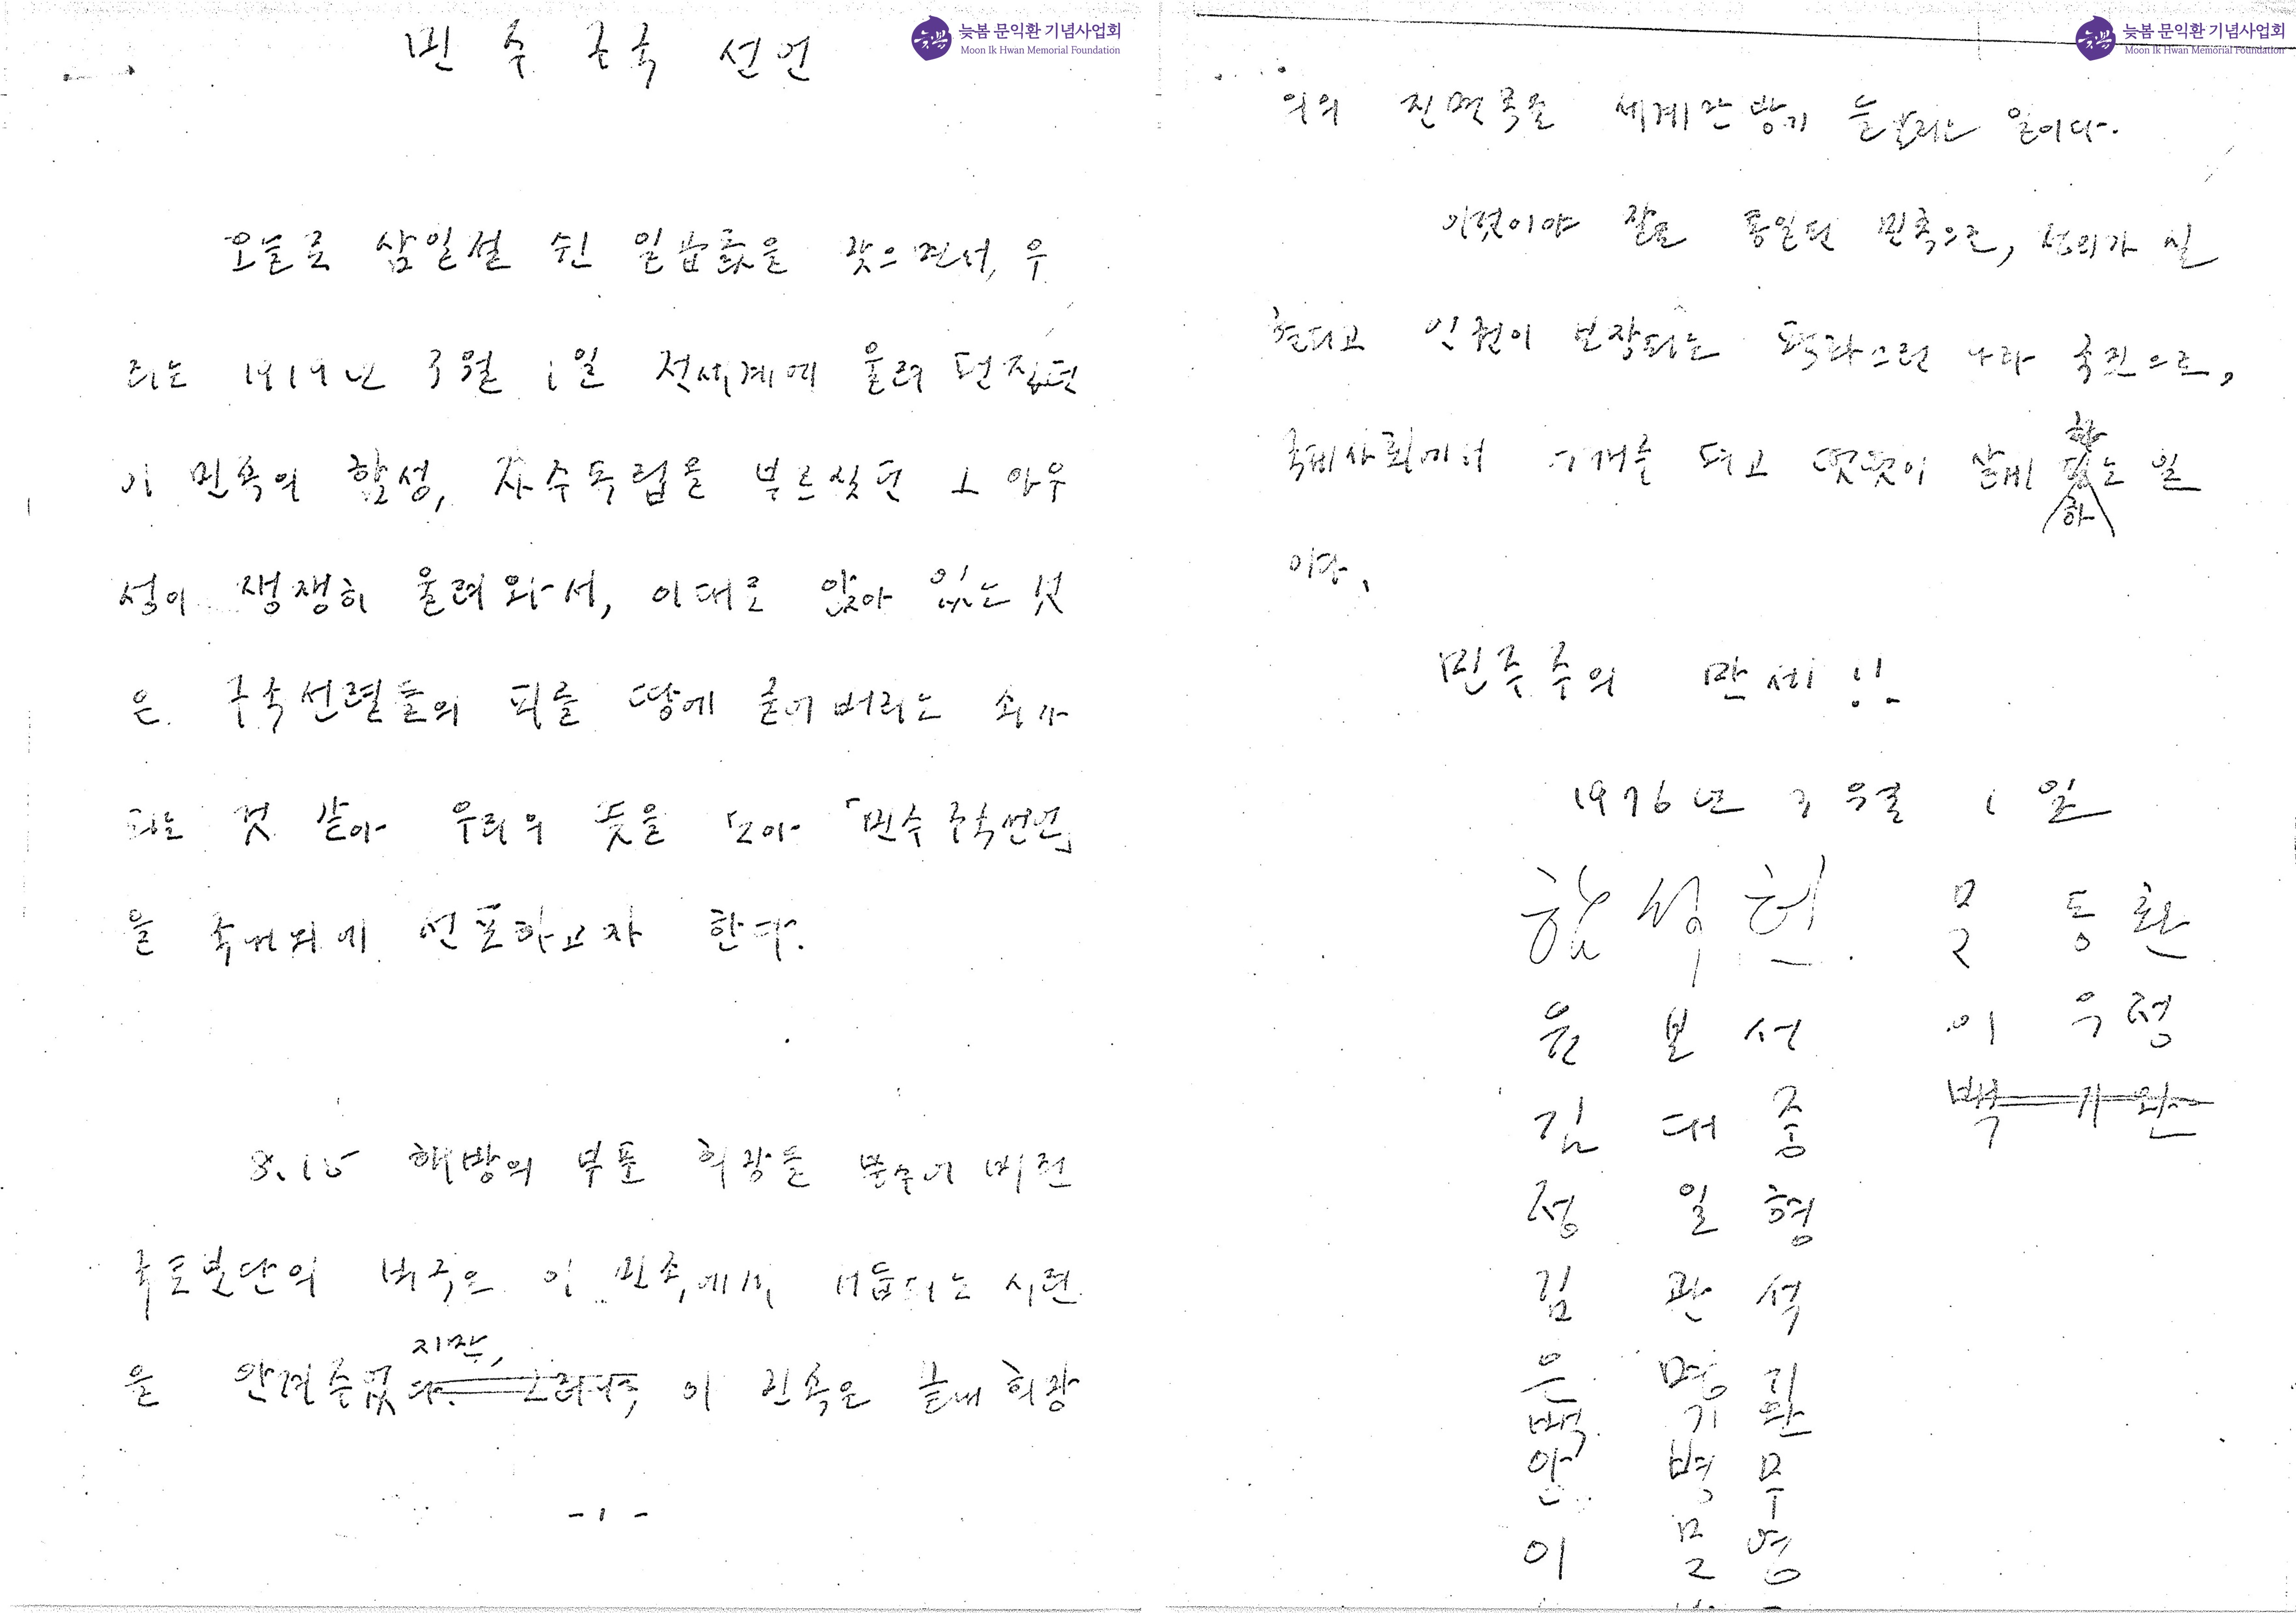 민주구국 선언
늦봄 문익환 기념사업회
Moon Ik Hwan Memorial Foundation
오늘로 삼일절 쉰 일곱 돐을 맞으면서, 우
리는 1919년 3월 1일 전세계에 울려 퍼지던
이 민족의 함성, 자주독립을 부르짖던 그 아우
성이 쟁쟁히 울려와서, 이대로 앉아 있는 것
은 구국선렬들의 피를 땅에 묻어버리는 죄가
되는 것 같아 우리의 뜻을 모아 「민주구국선언」
을 국내외에 선포하고자 한다.
8.15 해방의 부푼 희망을 부수어 버린
국토분단의 비극은 이 민족에게 거듭되는 시련
지만,
을 안겨주었다. 그러나, 이 민족은 끝내 희망
- 1 -
늦봄 문익환 기념사업회
Moon Ik Hwan Memorial Foundation
의의 진면목을 세계만방에 늘날리는 일이다.
이것이야 말로 통일된 민족으로, 정의가 실
현되고 인권이 보장되는 평화스런 나라 국민으로,
국제사회에서 어깨를 펴고 떳떳이 살게 하는 일
하
이다.
민주주의 만세!!
1976년 3월 1일
함석헌 문동환
윤보선 이우정
김대중 백기완
정일형
김관석
은명기
백기완
안병무
이문영